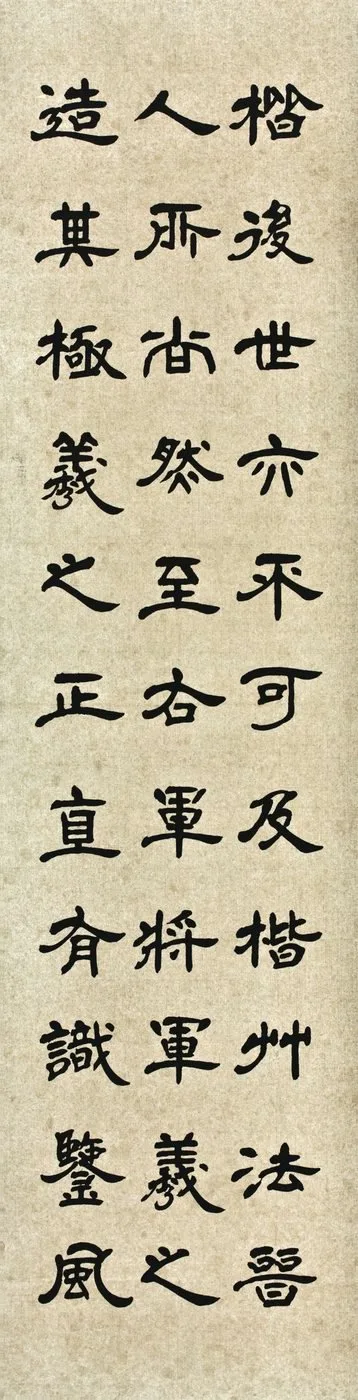 楷後世亦不可及楷艸法晉
人所尚然至右軍將軍羲之
造其極羲之正直有識鑒風